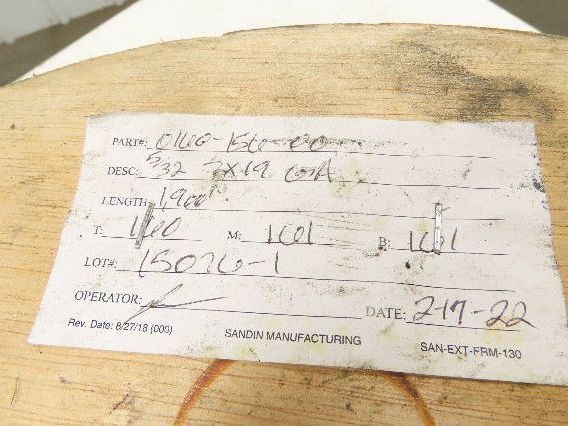 PART#: 0160-156-00
DESC: 5/32 7X19 GA
LENGTH: 1,900'
T: 160 M: 161 B: 161
LOT#: 15076-1
OPERATOR: DATE: 2-17-22
Rev. Date: 8/27/18 (000) SANDIN MANUFACTURING SAN-EXT-FRM-130